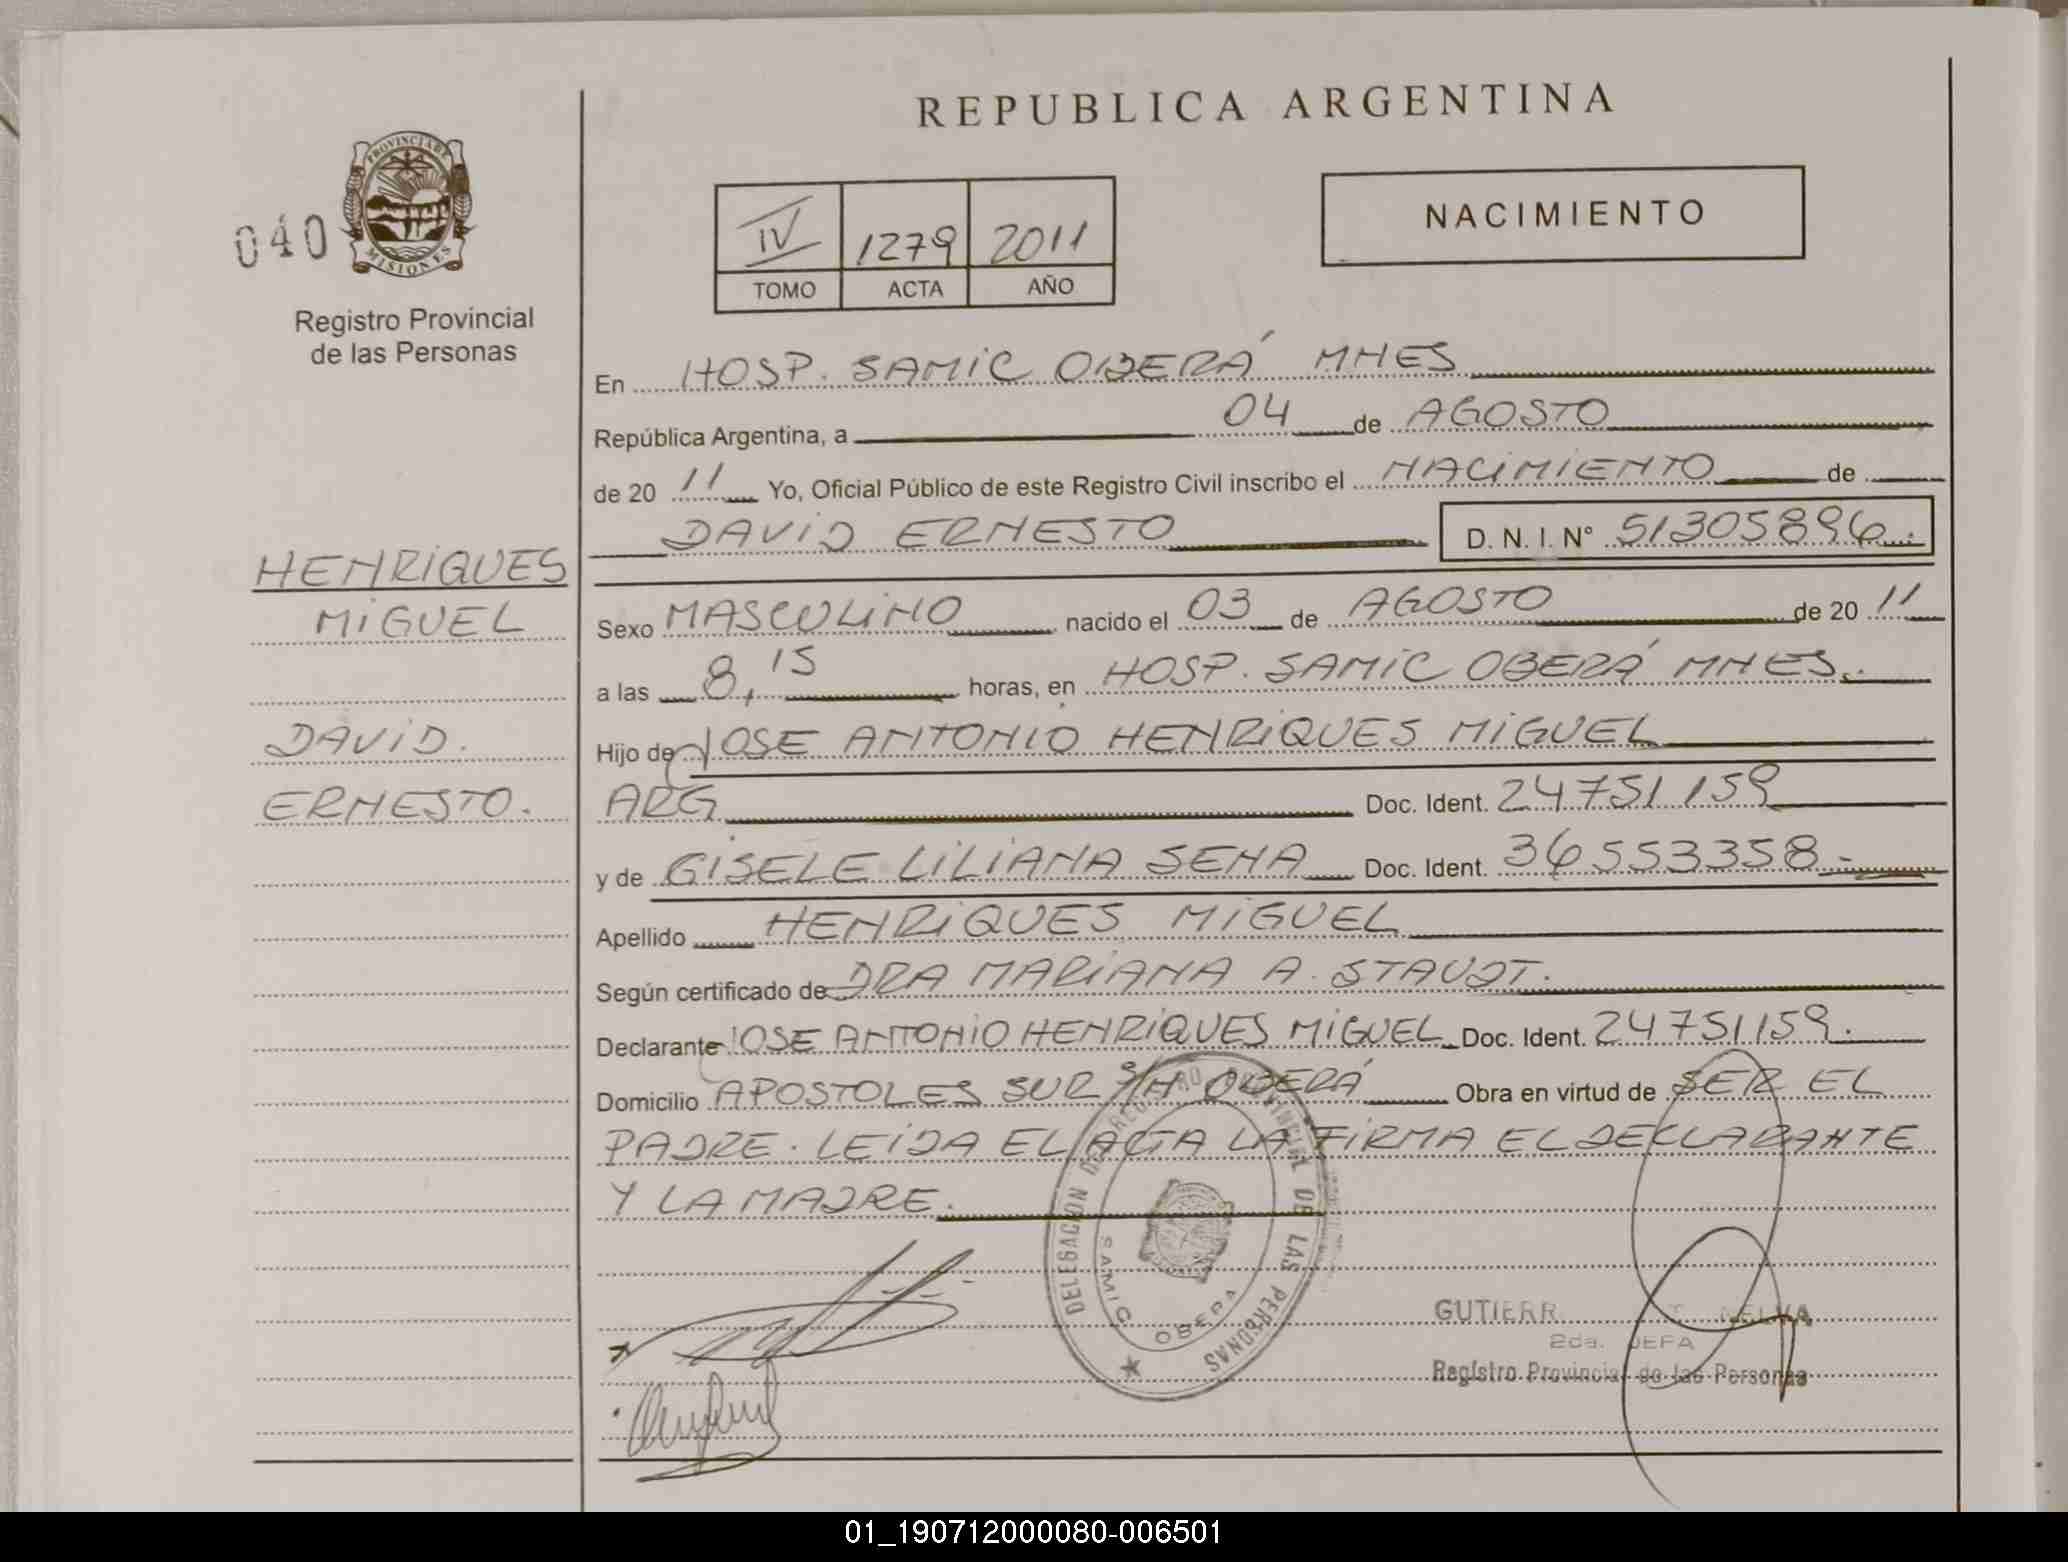 REPUBLICA ARGENTINA
PROVINCIA DE
MISIONES
040
Registro Provincial
de las Personas
IV 1279 2011
TOMO ACTA AÑO
NACIMIENTO
En HOSP. SAMIC OBERÁ MNES
República Argentina, a 04 de AGOSTO
de 20 11 Yo, Oficial Público de este Registro Civil inscribo el NACIMIENTO de
DAVID ERNESTO D. N. I. Nº 51305896.
HENRIQUES
MIGUEL
DAVID.
ERNESTO.
Sexo MASCULINO nacido el 03 de AGOSTO de 20 11
a las 8,15 horas, en HOSP. SAMIC OBERÁ MNES.
Hijo de JOSE ANTONIO HENRIQUES MIGUEL
ARG Doc. Ident. 24751159
y de GISELE LILIANA SENA Doc. Ident. 36553358.-
Apellido HENRIQUES MIGUEL
Según certificado de DRA MARIANA A. STAUDT.
Declarante JOSE ANTONIO HENRIQUES MIGUEL Doc. Ident. 24751159.
Domicilio APOSTOLES SUR S/N OBERÁ Obra en virtud de SER EL
PADRE. LEIDA EL ACTA LA FIRMA EL DECLARANTE
Y LA MADRE.
DELEGACION DEL REGISTRO PROVINCIAL DE LAS PERSONAS
SAMIC OBERA
GUTIERR NELVA
2da. JEFA
Registro Provincial de las Personas
01_190712000080-006501